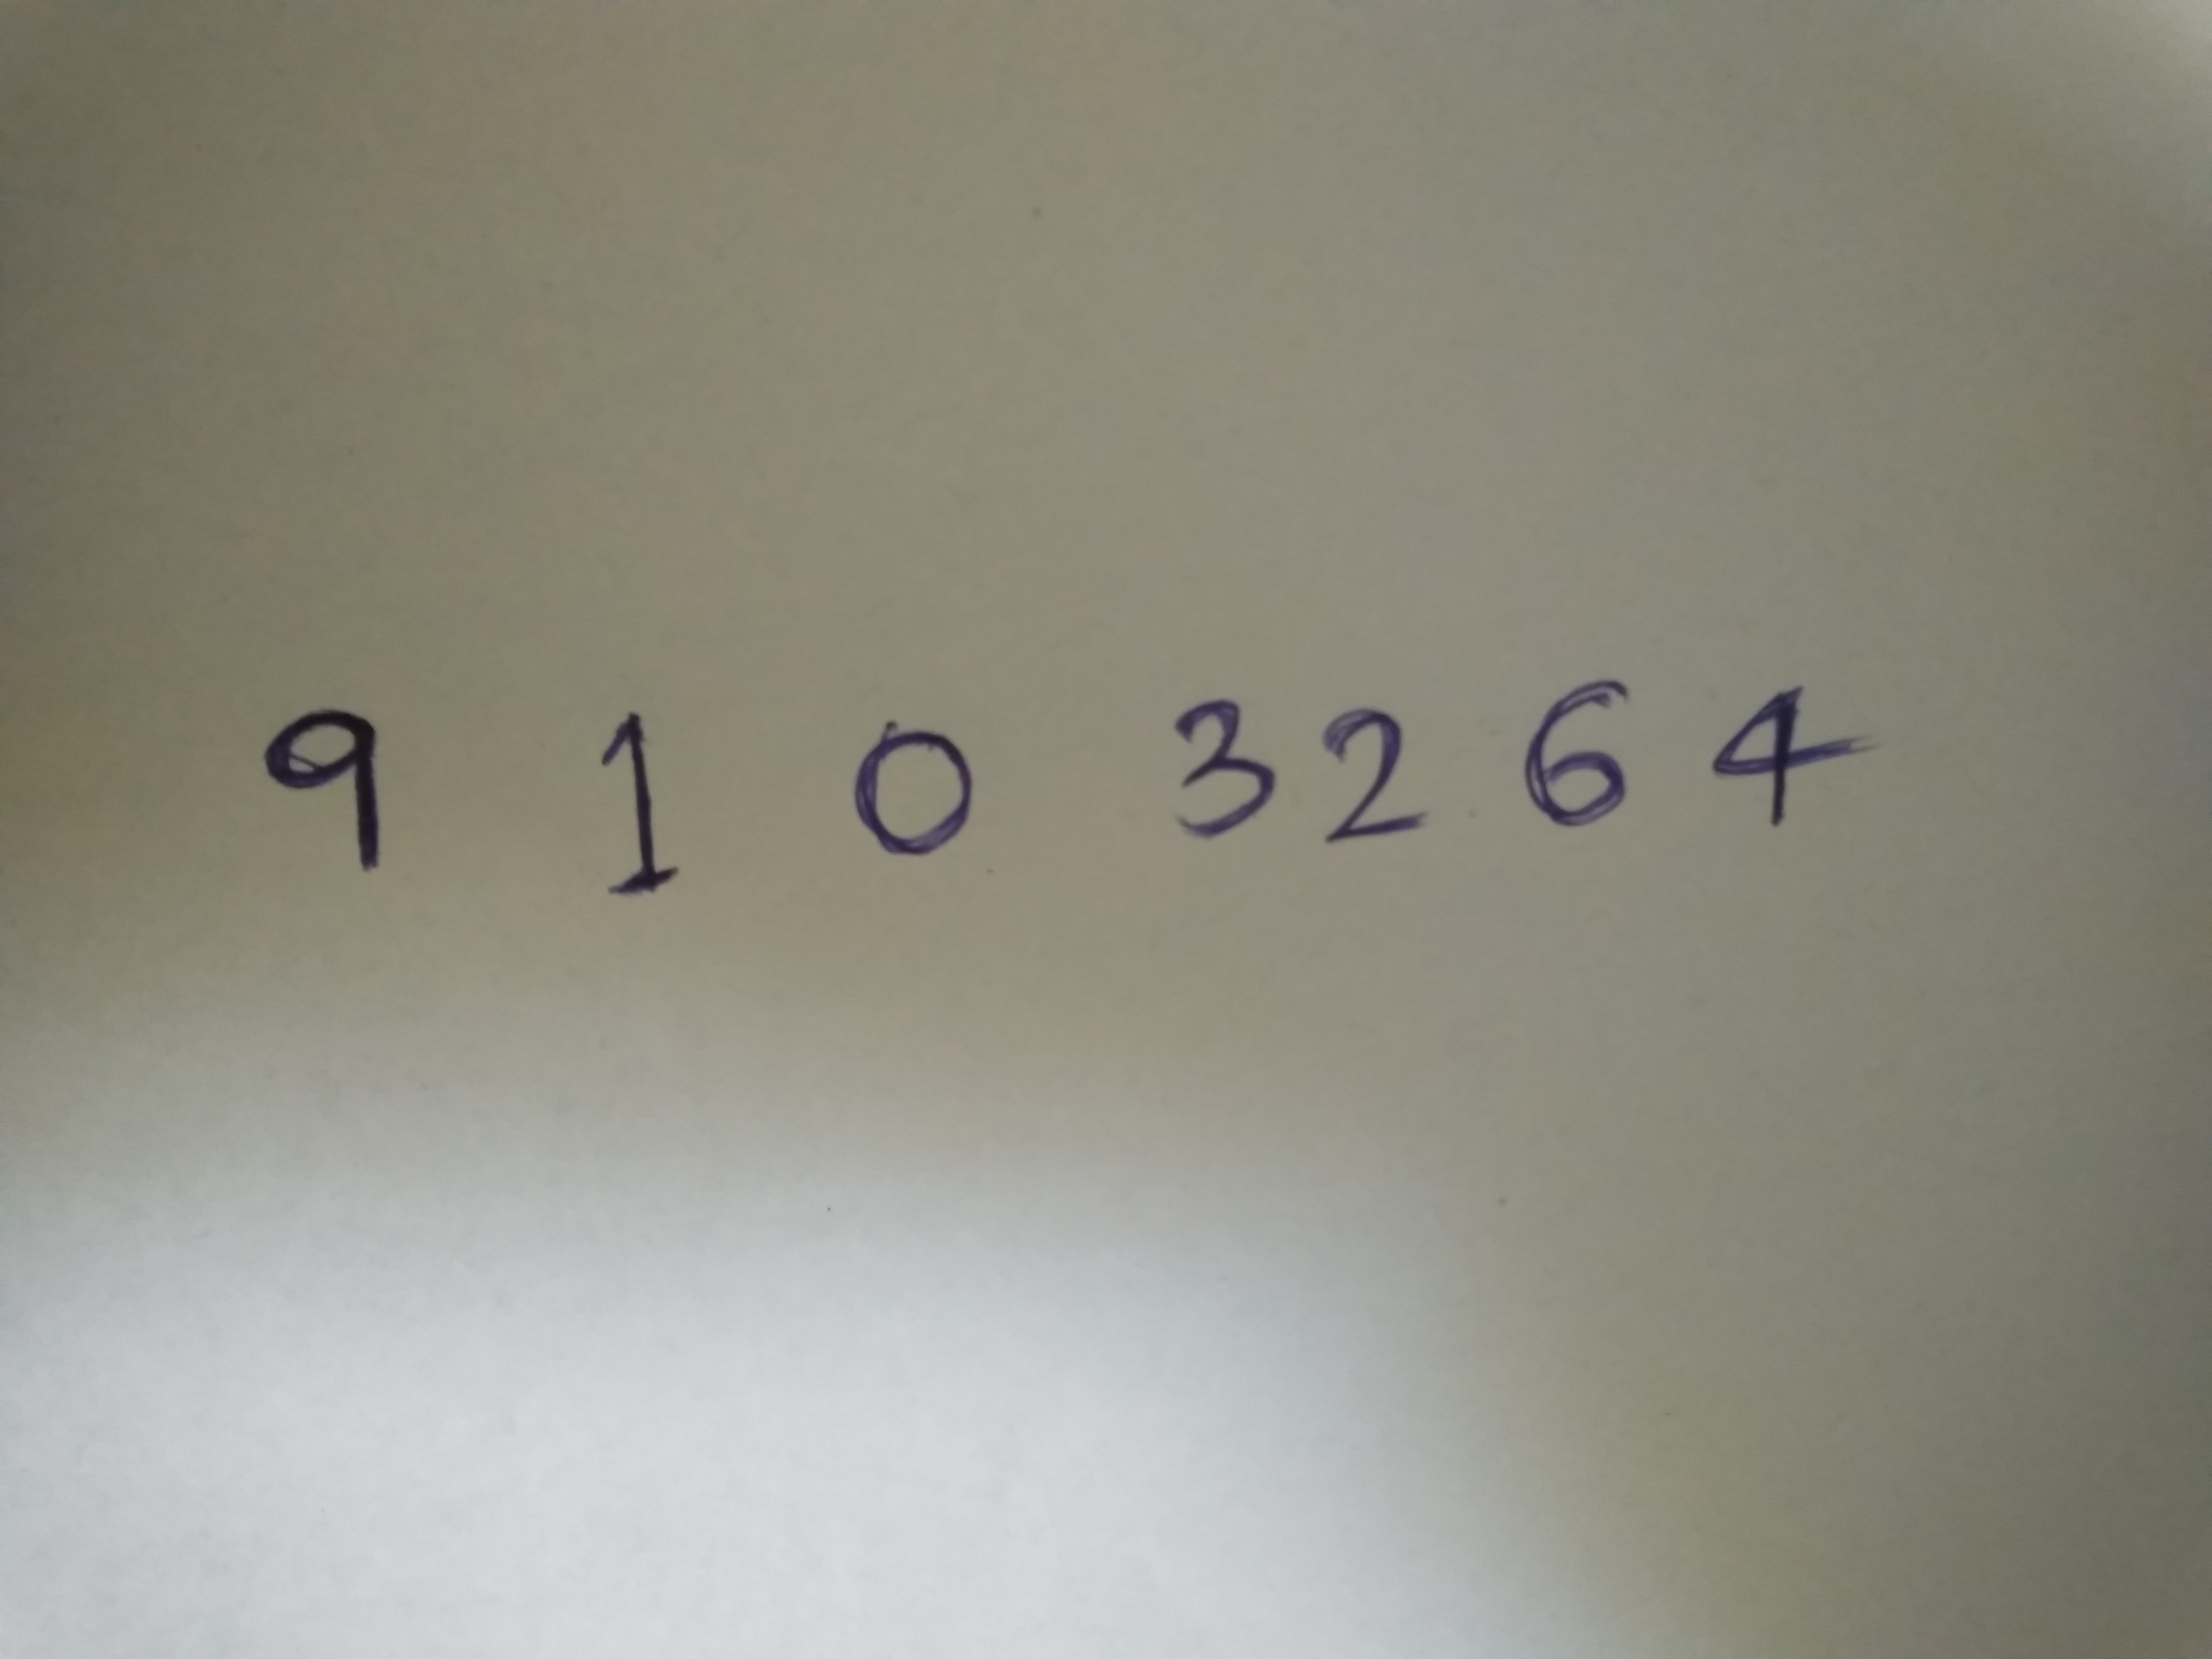 9 1 0 3 2 6 4